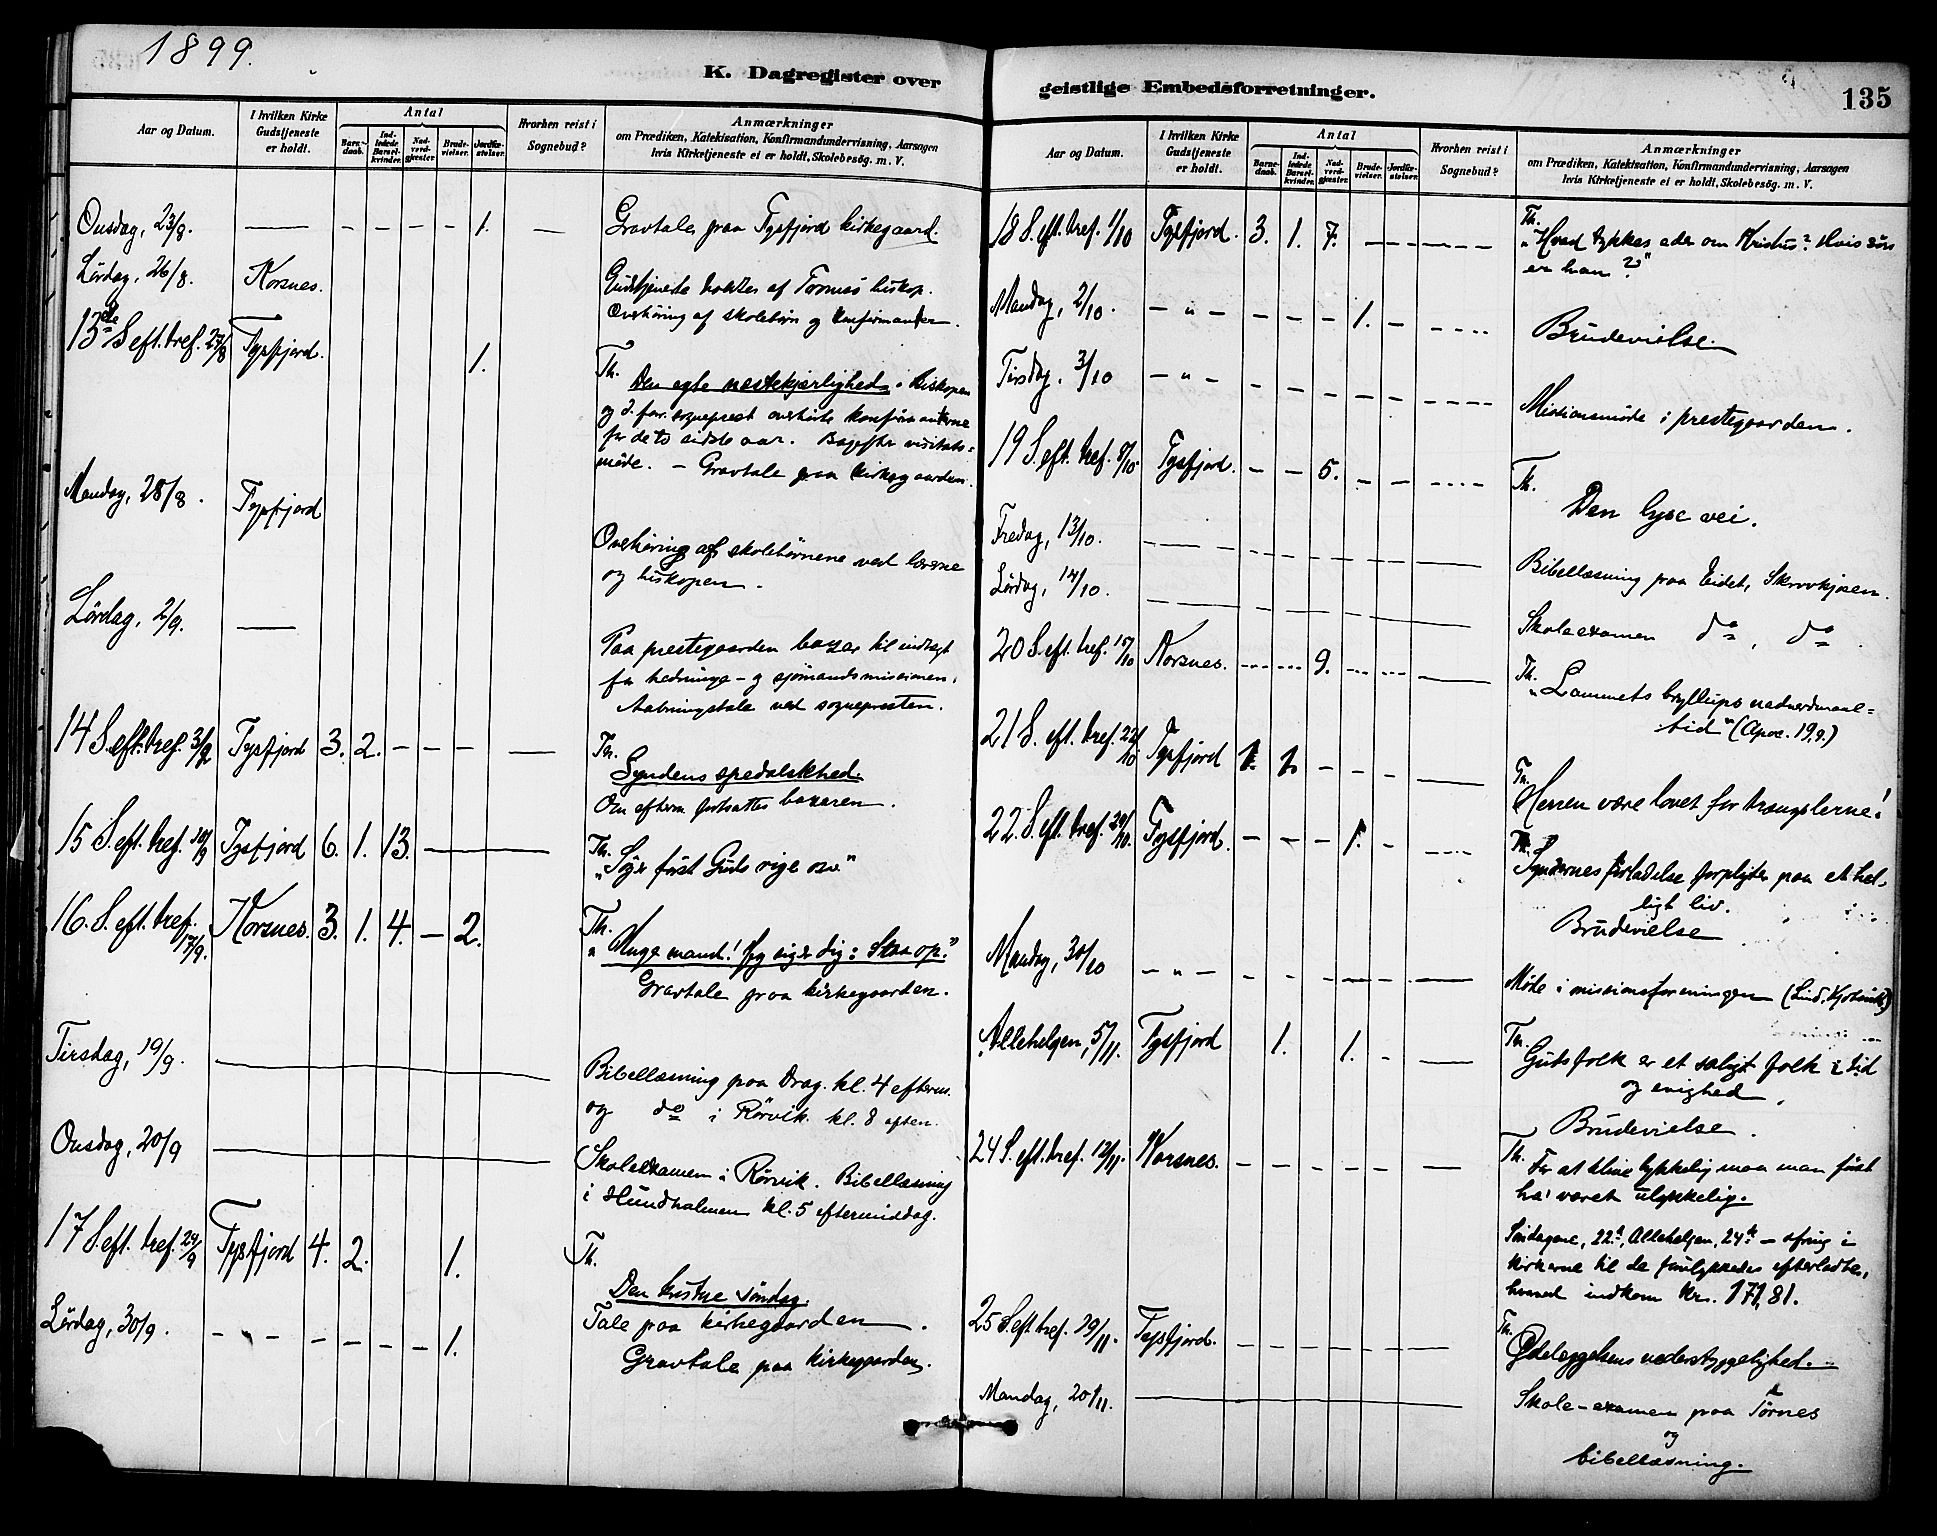 1899.
K. Dagregister over
Aar og Datum.
I hvilken Kirke
Gudstjeneste
er holdt.
Antal
Barne-
daab.
Ind-
ledede
Barsel-
kvinder.
Nad-
verd-
gjester.
Brude-
vielser.
Jordfæ-
stelser.
Hvorhen reist i
Sognebud?
Anmærkninger
om Prædiken, Katekisation, Konfirmandundervisning, Aarsagen
hvis Kirketjeneste ei er holdt, Skolebesög. m. V.
Onsdag, 23/8. — – – – – 1. — Gravtale paa Tysfjord kirkegaard.
Lördag, 26/8. Korsnes. Gudstjeneste holdtes af Tromsø biskop.
Overhöring af skolebörn og konfirmanter.
13de S. eft. tref. 27/8 Tysfjord. 1. Th. Den egte nestekjærlighed. Biskopen
og d. far. sogneprest overhörte konfirmanterne
for de to sidste aar. Bagefter visitats=
möde. – Gravtale paa kirkegaarden.
Mandag, 28/8. Tysfjord
Overhöring af skolebörnene ved lærerne
og biskopen.
Lördag, 2/9. —
Paa prestegaarden bazar til indtægt
for hedninge- og sjömandsmissionen.
Aabningstale ved sognepresten.
14 S. eft. tref. 3/9 Tysfjord 3. 2. – – – — Th.
Syndens spedalskhed.
Om efterm. fortsattes bazaren.
15 S. eft. tref. 10/9 Tysfjord 6. 1. 13. — Th.
"Söger först Guds rige osv."
16. S. eft. tref. 17/9. Korsnes. 3. 1. 4. – 2. Th.
"Unge mand! Jeg siger dig: Staa op."
Gravtale paa kirkegaarden.
Tirsdag, 19/9. —
Bibellæsning paa Drag. kl. 4 efterm.
og do i Rörvik. kl. 8 aften.
Onsdag, 20/9 —
Skoleexamen i Rörvik. Bibellæsning
i Hundholmen kl. 5 eftermiddag.
17 S. eft. tref. 24/9 Tysfjord 4. 2. 1. Th.
Den kristne söndag.
Tale paa kirkegaarden.
Lördag, 30/9. – – – – – – – 1.
Gravtale paa kirkegaarden.
geistlige Embedsforretninger.
135
Aar og Datum.
I hvilken Kirke
Gudstjeneste
er holdt.
Antal
Barne-
daab.
Ind-
ledede
Barsel-
kvinder.
Nad-
verd-
gjester.
Brude-
vielser.
Jordfæ-
stelser.
Hvorhen reist i
Sognebud?
Anmærkninger
om Prædiken, Katekisation, Konfirmandundervisning, Aarsagen
hvis Kirketjeneste ei er holdt, Skolebesög. m. V.
18 S. eft. tref. 1/10 Tysfjord. 3. 1. 7. – – – Th.
"Hvad tykkes eder om Kristus? Hvis sön
er han?"
Mandag, 2/10. – " – – – – 1. – –
Brudevielse.
Tirsdag, 3/10 – " – – – – – – –
Missionsmöde i prestegaarden.
19 S. eft. tref. 8/10. Tysfjord. – – 5. – – – Th.
Den lyse vei.
Fredag, 13/10. —
Bibellæsning paa Eidet, Skrovkjosen.
Lördag, 14/10. —
Skoleexamen do, do.
20 S. eft. tref. 15/10 Korsnes. – – 9. – – — Th.
"Lammets bryllups nadverdmaal=
tid" (Apoc. 19,9.)
21 S. eft. tref. 22/10 Tysfjord 1. 1. – – – — Th.
Herren være lovet for trængslerne!
22. S. eft. tref. 29/10. Tysfjord. – – – 1. – – Th.
Syndernes forladelse forpligter paa et hel-
ligt liv.
Brudevielse.
Mandag, 30/10 – " – – – – – – —
Möde i missionsforeningen
Allehelgen, 5/11. Tysfjord 1. 1. – — Th.
Guds folk er et saligt folk i tid
og evighed.
Brudevielse.
24 S. eft. tref. 12/11. Korsnes. – – – – – — Th.
For at blive lykkelig maa man först
ha' været ulykkelig.
Söndagene, 22de, Allehelgen, 24de – ofring i
kirkerne til de forulykkedes efterladte,
hvorved indkom kr. 171,81.
25 S. eft. tref. 19/11. Tysfjord. – – – – – – Th.
Ödeleggelsens vederstyggelighed.
Mandag, 20/11. —
Skole-examen paa Törnes
og
bibellæsning.